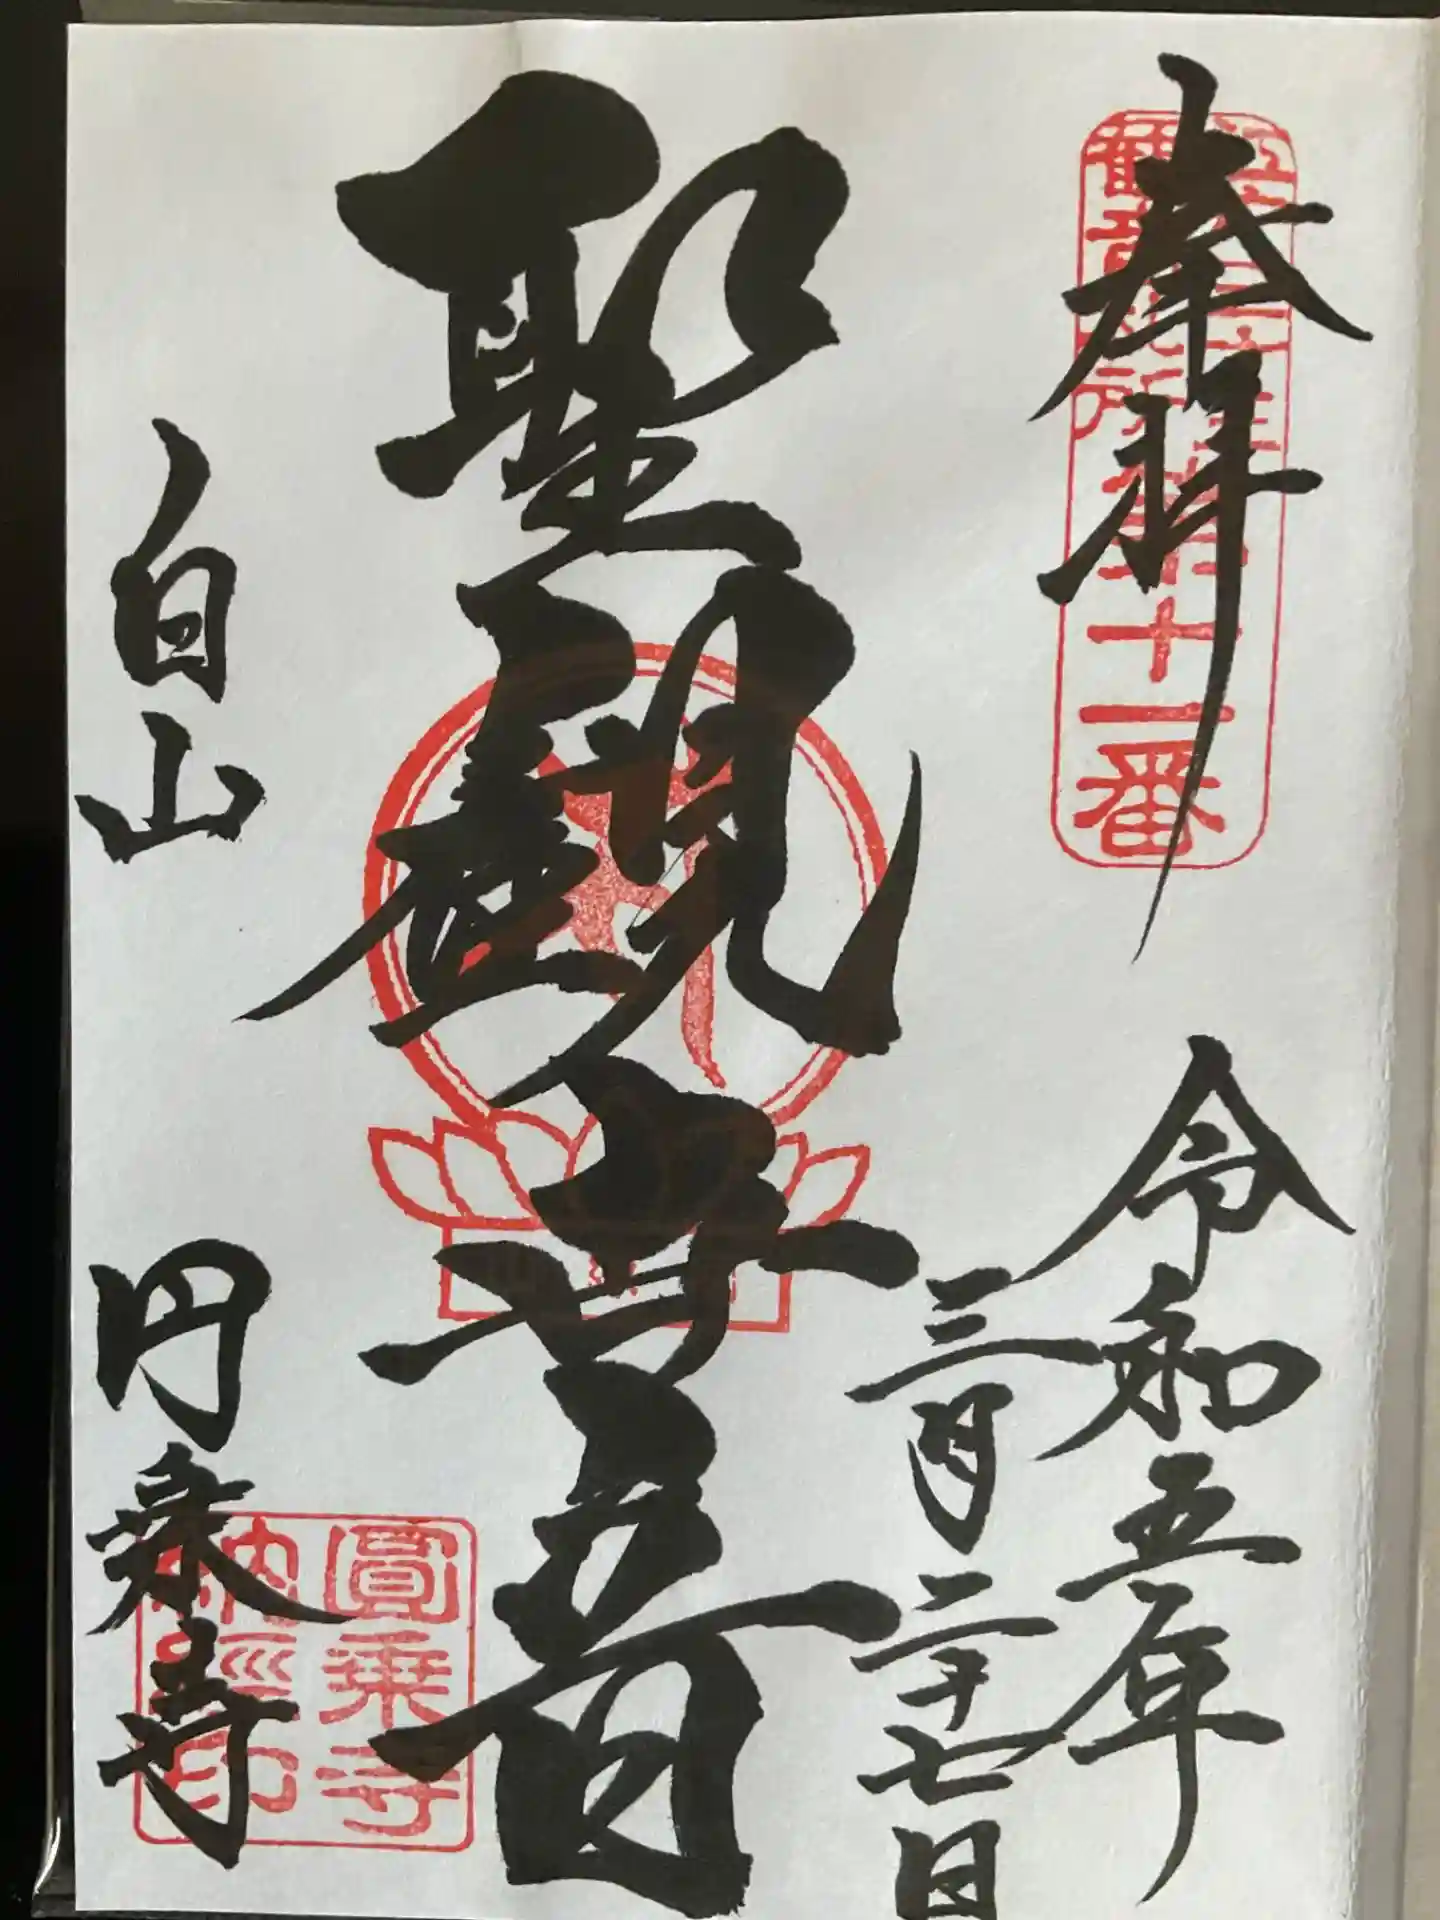 奉拝
観音札所
第十一番
令和五年
三月二十七日
聖観世音
白山
円乗寺
圓乗寺
納經印